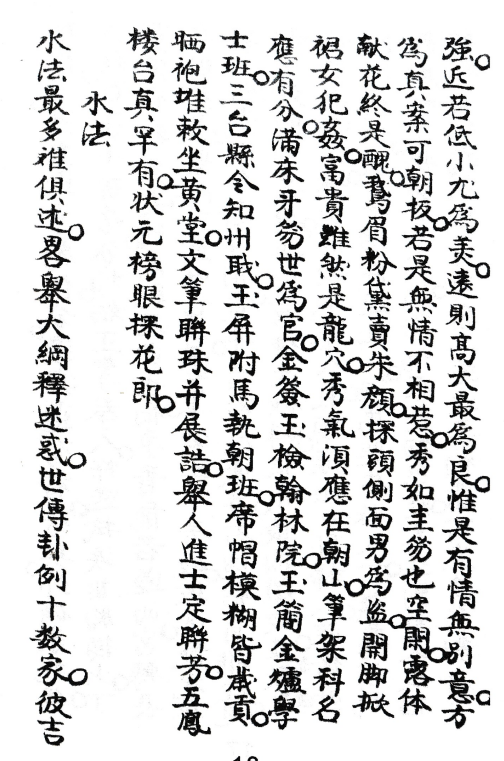 強。近若低小尤為美。遠則高大最為良。惟是有情無别意。方
為真案可朝扳。若是無情不相惹。秀如圭笏也空閑。露体
献花終是醜。鵞眉粉黛賣朱顔。探頭側面男為盗。開脚掀
裙女犯姦。富貴雖然是龍穴。秀氣湏應在朝山。筆架科名
應有分。滿床牙笏世為官。金簽玉檢翰林院。玉簡金爐學
士班。三台縣令知州戝。玉屏附馬執朝班。席帽模糊皆歲貢。
晒袍堆敕坐黄堂。文筆聨珠并展誥。舉人進士定聨芳。五鳳
楼台真罕有。状元榜眼探花郎。
水法
水法最多难俱述。畧舉大綱釋迷惑。世傳卦例十数家。彼吉